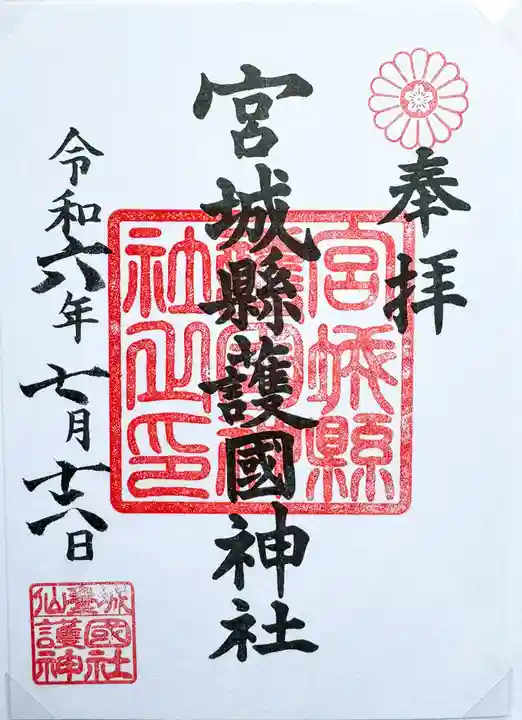 奉拝
宮城縣護國神社
令和六年七月十六日
宮城縣
護國神
社之印
仙臺城
護國
神社